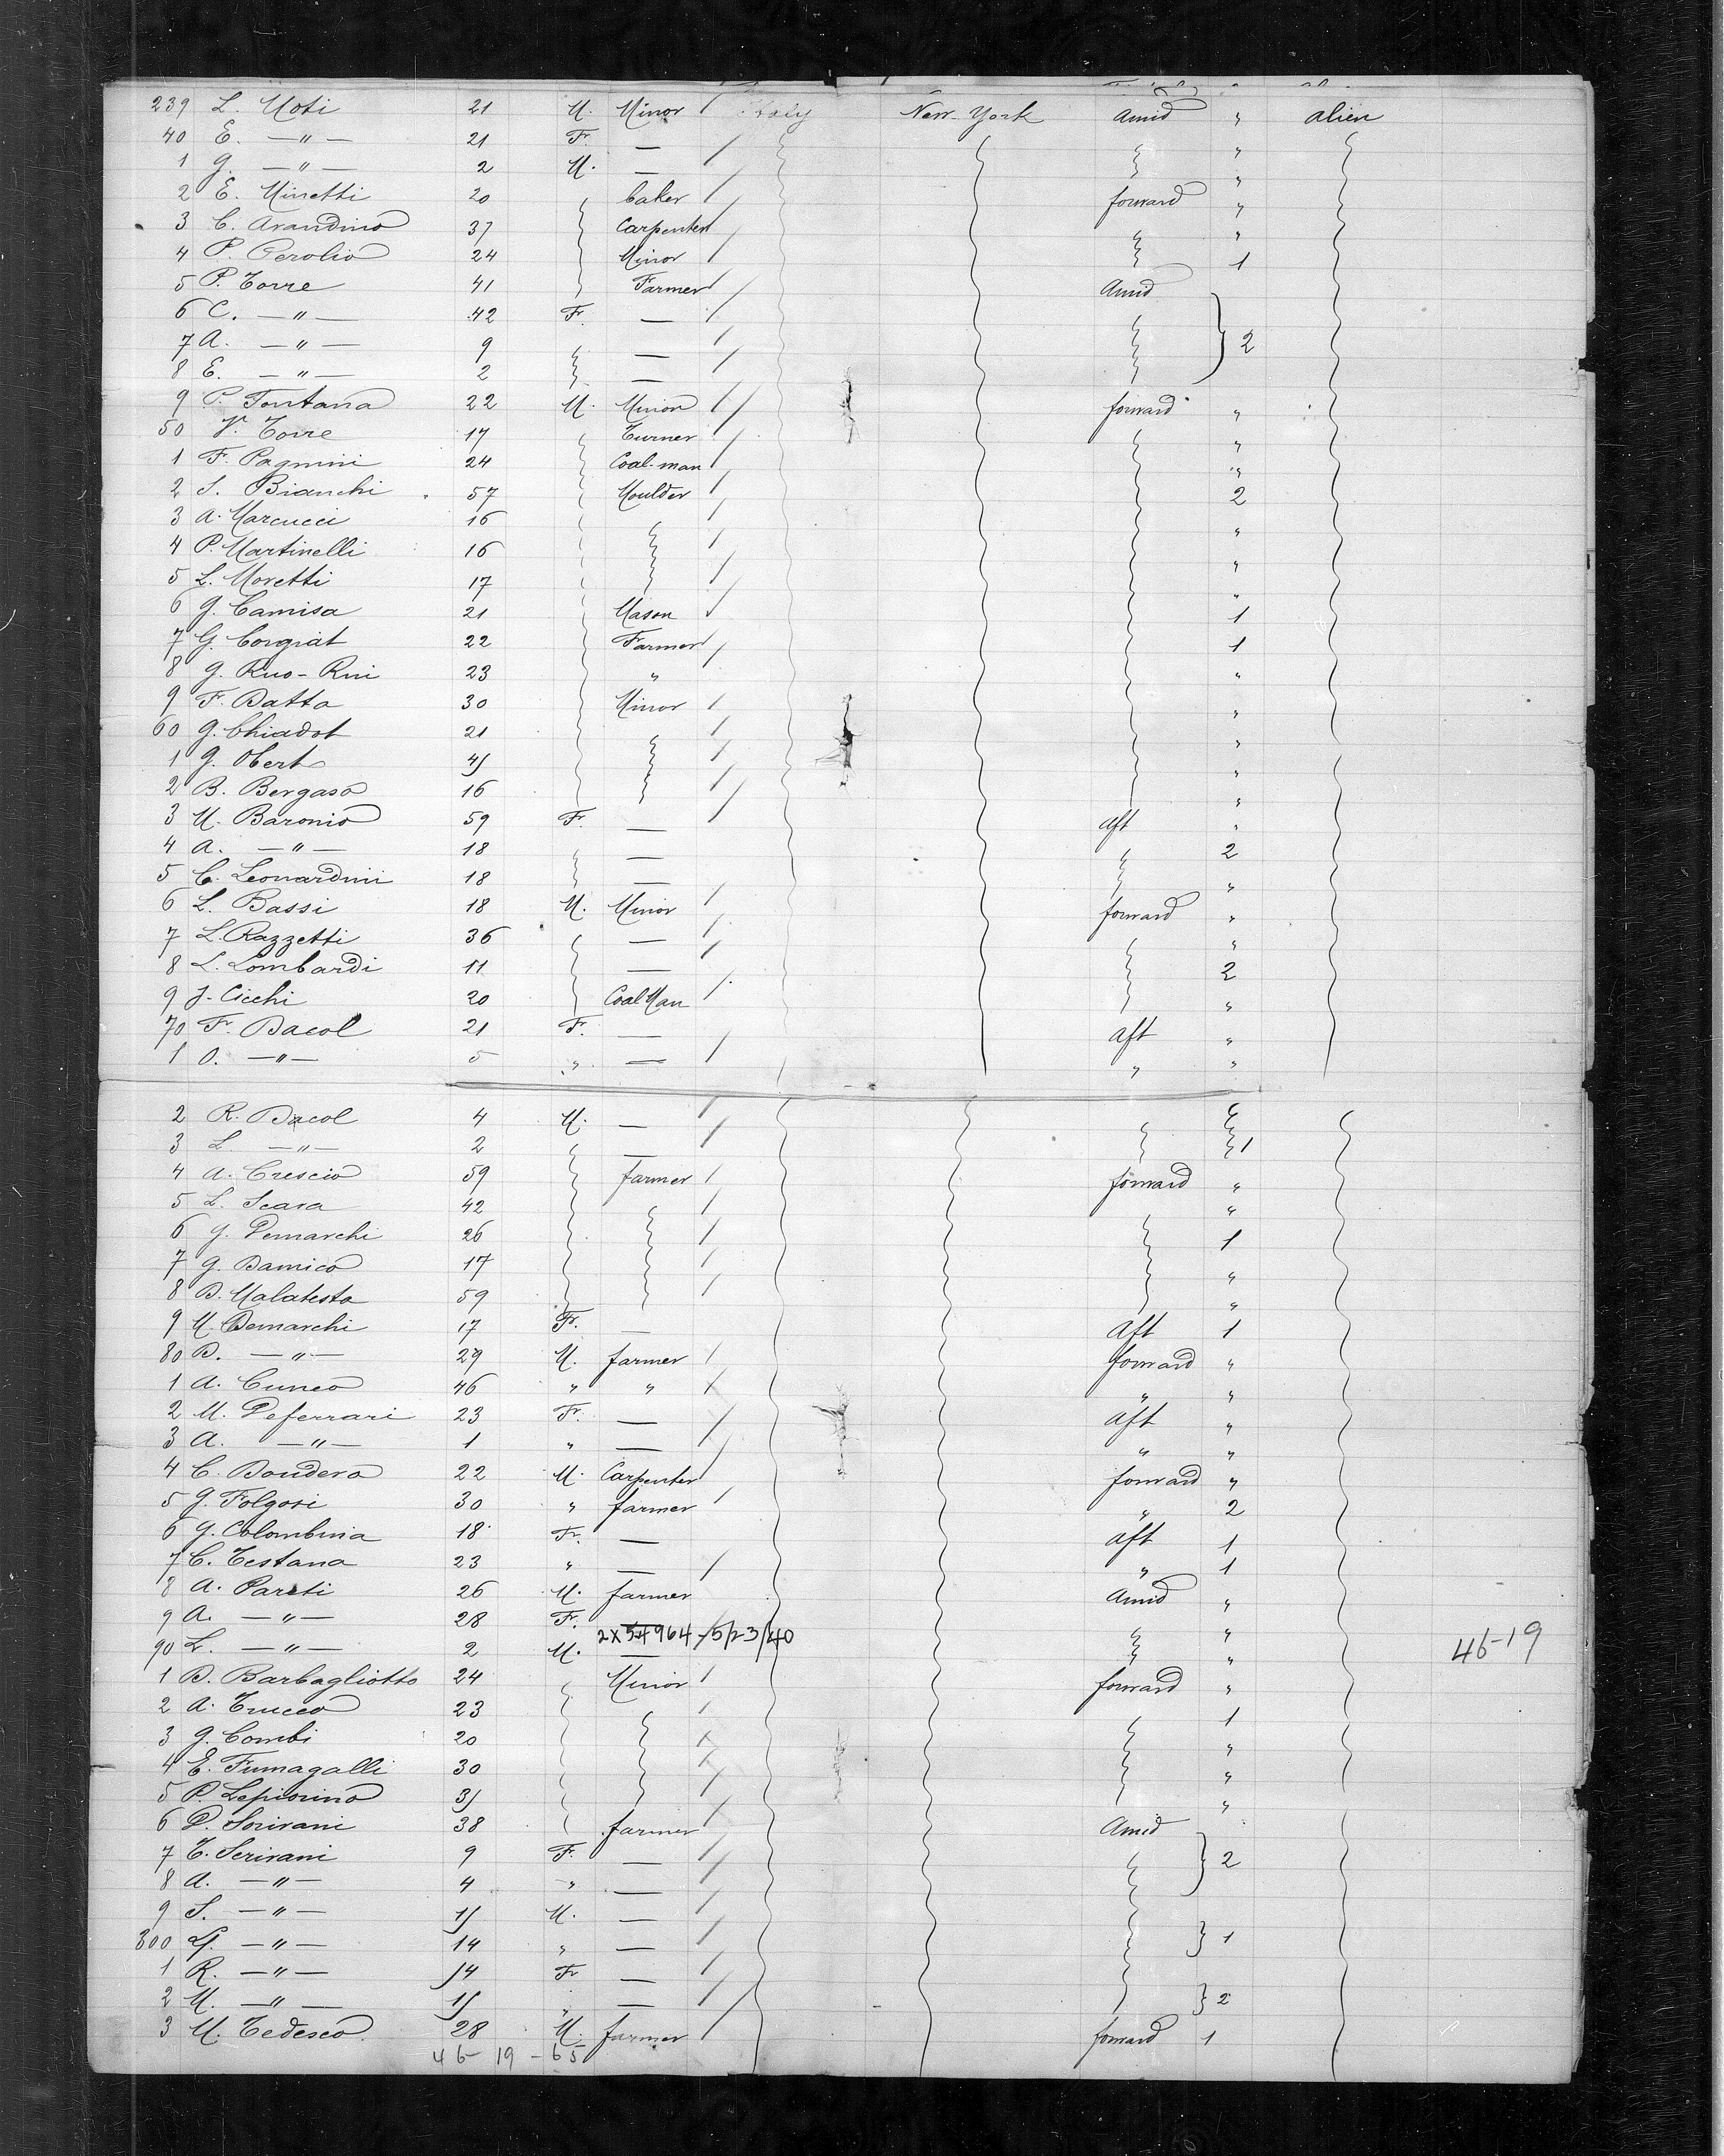 239 L. Moti 21 M. Minor Italy New-York Amid " alien
40 E. —"— 21 Fr. — "
1 G. —"— 2 M. — "
2 E. Minetti 20 baker forward "
3 C. Arandino 37 Carpenter "
4 P. Cerolio 24 Minor 1
5 P. Torre 41 Farmer Amid
6 C. —"— 42 Fr. —
7 A. —"— 9 — 2
8 E. —"— 2 —
9 P. Fontana 22 M. Minor forward "
50 V. Torre 17 Turner "
1 F. Pagnini 24 Coal-man "
2 S. Bianchi 57 Moulder 2
3 A. Marcucci 16 "
4 P. Martinelli 16 "
5 L. Moretti 17 "
6 G. Camisa 21 Mason 1
7 G. Corgiat 22 Farmer 1
8 G. Ruo-Rui 23 " "
9 F. Datta 30 Minor "
60 G. Chiadot 21 "
1 G. Obert "
2 B. Bergaso 16 "
3 M. Baronio 59 Fr. — aft "
4 A. —"— 18 — 2
5 C. Leonardini 18 — "
6 L. Bassi 18 M. Minor forward "
7 L. Razzetti 36 — "
8 L. Lombardi 11 — 2
9 J. Cicchi 20 Coal Man "
70 F. Dacol 21 Fr. — aft "
1 O. —"— 5 " — " "
2 R. Dacol 4 M. —
3 L —"— 2 — 1
4 A. Crescio 59 farmer forward "
5 L. Scara 42 "
6 G. Demarchi 26 1
7 G. Damico 17 "
8 D. Malatesta 59 "
9 M. Demarchi 17 Fr. — aft 1
80 D. —"— 29 M. farmer forward "
1 A. Cuneo 46 " " " "
2 M. Deferrari 23 Fr. — aft "
3 A. —"— 1 " — " "
4 C. Dondero 22 M. Carpenter forward "
5 G. Folgosi 30 " farmer " 2
6 G. Colombina 18 Fr. — aft 1
7 C. Testana 23 " — " 1
8 A. Pareti 26 M. farmer Amid "
9 A. —"— 28 Fr. — "
2X54964-5/23/40
90 L. —"— 2 M. — " 46-19
1 D. Barbagliotto 24 Minor forward "
2 A. Trucco 23 1
3 G. Combi 20 "
4 E. Fumagalli 30 "
5 P. Lepiorino "
6 D. Scrivani 38 farmer Amid
7 T. Scrivani 9 Fr. — 2
8 A. —"— 4 " —
9 S. —"— M. —
300 G. —"— 14 " — 1
1 R. —"— 14 Fr —
2 M. —"— " — 2
3 M. Tedesco 28 M. farmer forward 1
46-19-65